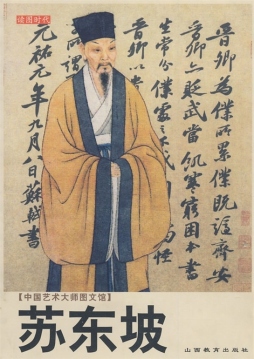 读图时代
晋卿為僕所累僕既謫齊安
晋卿亦貶武當飢寒窮困本書
生常分僕處
怪
晋卿以
元祐元年九月八日蘇軾書
【中国艺术大师图文馆】
苏东坡
山西教育出版社